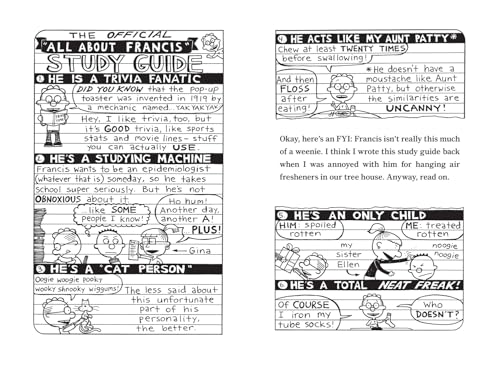 THE OFFICIAL
"ALL ABOUT FRANCIS"
STUDY GUIDE
1 HE IS A TRIVIA FANATIC
DID YOU KNOW that the pop-up
toaster was invented in 1919 by
a mechanic named... YAK YAK YAK
Hey, I like trivia, too, but
it's GOOD trivia, like sports
stats and movie lines— stuff
you can actually USE.
2 HE'S A STUDYING MACHINE
Francis wants to be an epidemiologist
(whatever that is) someday, so he takes
school super seriously. But he's not
OBNOXIOUS about it
...like SOME
people I know!
Ho hum!
Another day,
another A!
PLUS!
Gina
3 HE'S A "CAT PERSON"
Oogie woogie pooky
wooky shnooky wiggums!
The less said about
this unfortunate
part of his
personality,
the better.
4 HE ACTS LIKE MY AUNT PATTY*
Chew at least TWENTY TIMES
before swallowing!
And then
FLOSS
after
eating!
*He doesn't have a
moustache like Aunt
Patty, but otherwise
the similarities are
UNCANNY!
Okay, here's an FYI: Francis isn't really this much
of a weenie. I think I wrote this study guide back
when I was annoyed with him for hanging air
fresheners in our tree house. Anyway, read on.
5 HE'S AN ONLY CHILD
HIM: spoiled
rotten
ME: treated
rotten
my
sister
Ellen
noogie
noogie
6 HE'S A TOTAL NEAT FREAK!
Of COURSE
I iron my
tube socks!
Who
DOESN'T?